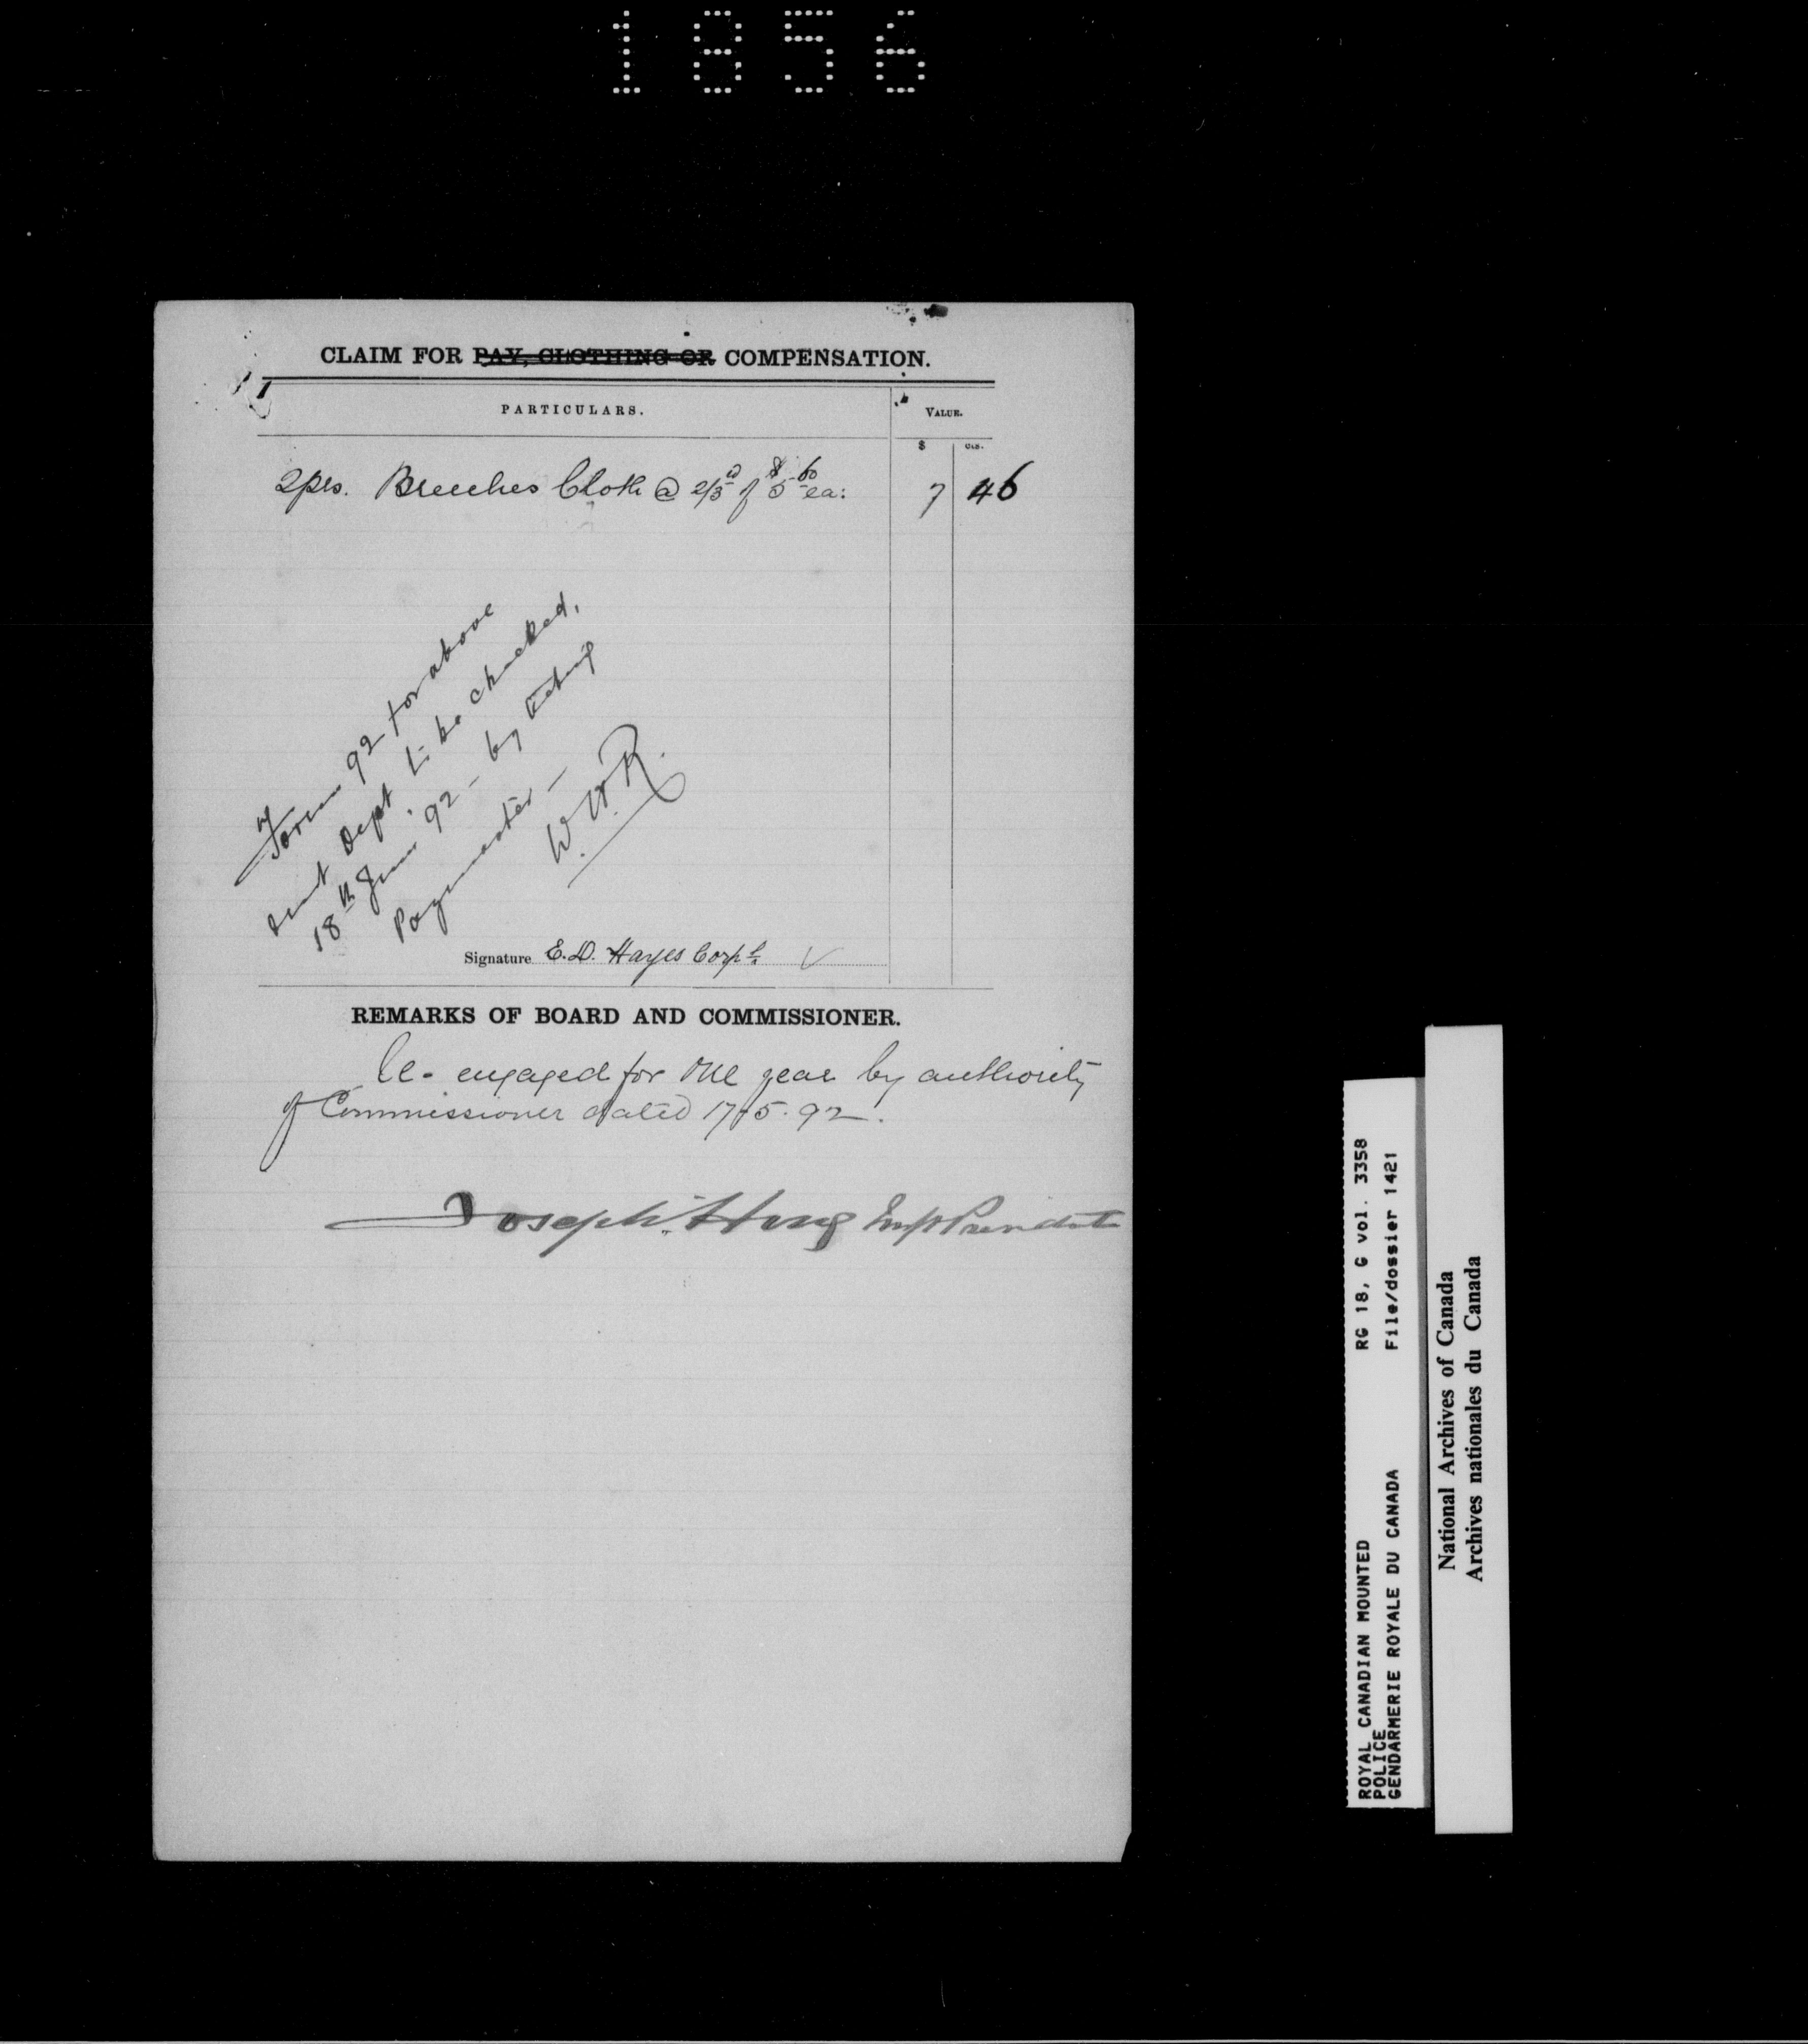 1856
CLAIM FOR PAY, CLOTHING OR COMPENSATION.
PARTICULARS.
VALUE.
$ cts.
2 prs. Breeches Cloth @ 2/3rd of $5.60 ea: 7 46
Form 92 for above
sent Dept to be checked,
18th June 92 - by Acting
Paymaster -
Signature E. D. Hayes Corpl.
REMARKS OF BOARD AND COMMISSIONER.
Re-engaged for one year by authority
of Commissioner dated 17-5-92.
Joseph Howe Insp President
ROYAL CANADIAN MOUNTED RG 18, G vol. 3358
POLICE File/dossier 1421
GENDARMERIE ROYALE DU CANADA
National Archives of Canada
Archives nationales du Canada